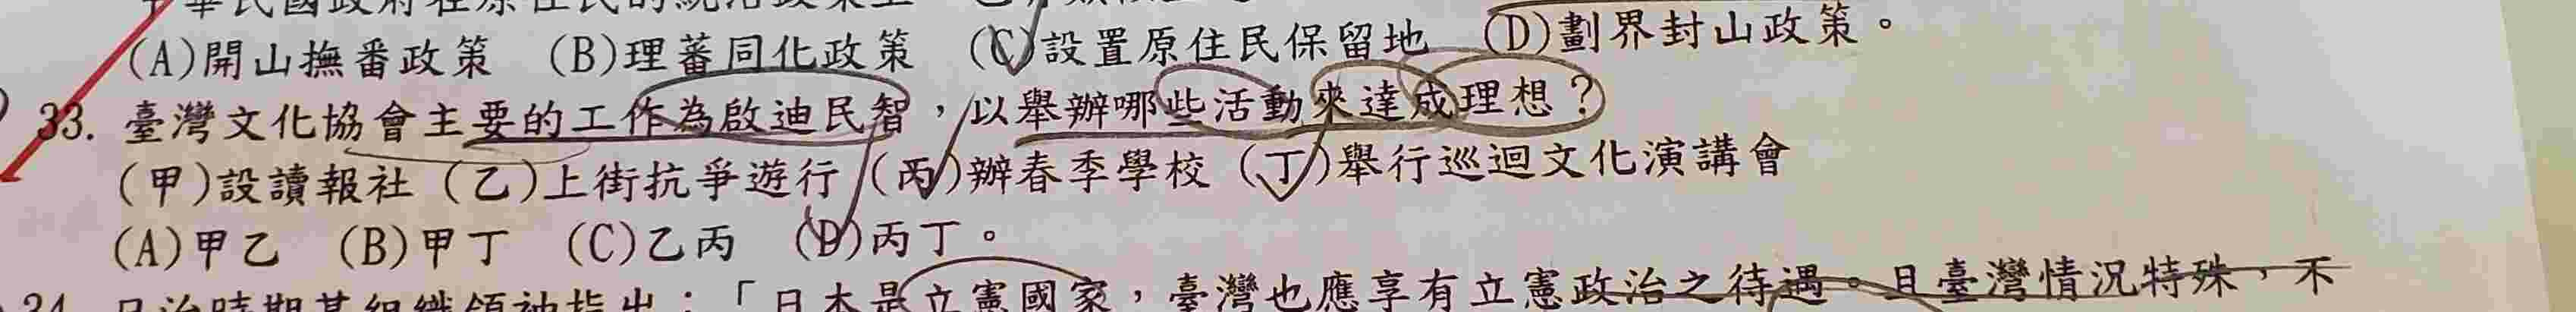 中華民國政府在原住民的統治政策上
(A)開山撫番政策 (B)理蕃同化政策 (C)設置原住民保留地 (D)劃界封山政策。
33. 臺灣文化協會主要的工作為啟迪民智，以舉辦哪些活動來達成理想？
(甲)設讀報社 (乙)上街抗爭遊行 (丙)辦春季學校 (丁)舉行巡迴文化演講會
(A)甲乙 (B)甲丁 (C)乙丙 (D)丙丁。
34. 日治時期某組織領袖指出：「日本是立憲國家，臺灣也應享有立憲政治之待遇。且臺灣情況特殊，不